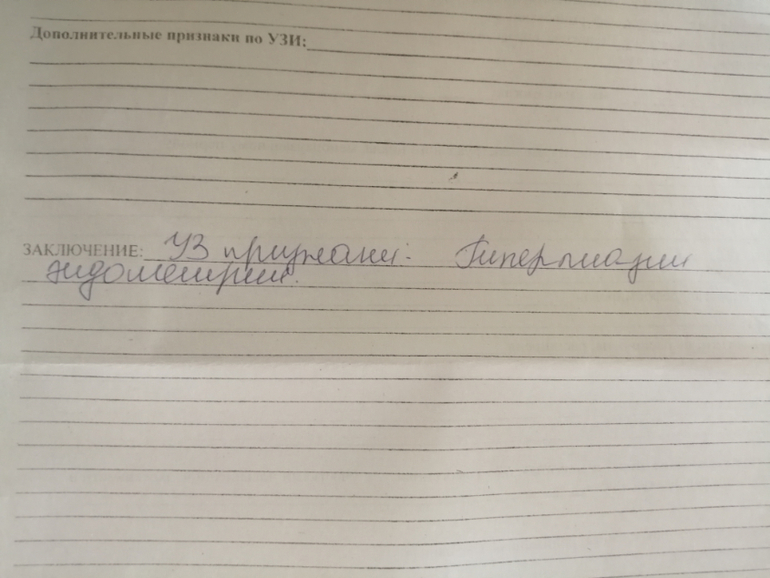 Дополнительные признаки по УЗИ:
ЗАКЛЮЧЕНИЕ: УЗ признаки: Гиперплазии
эндометрии.